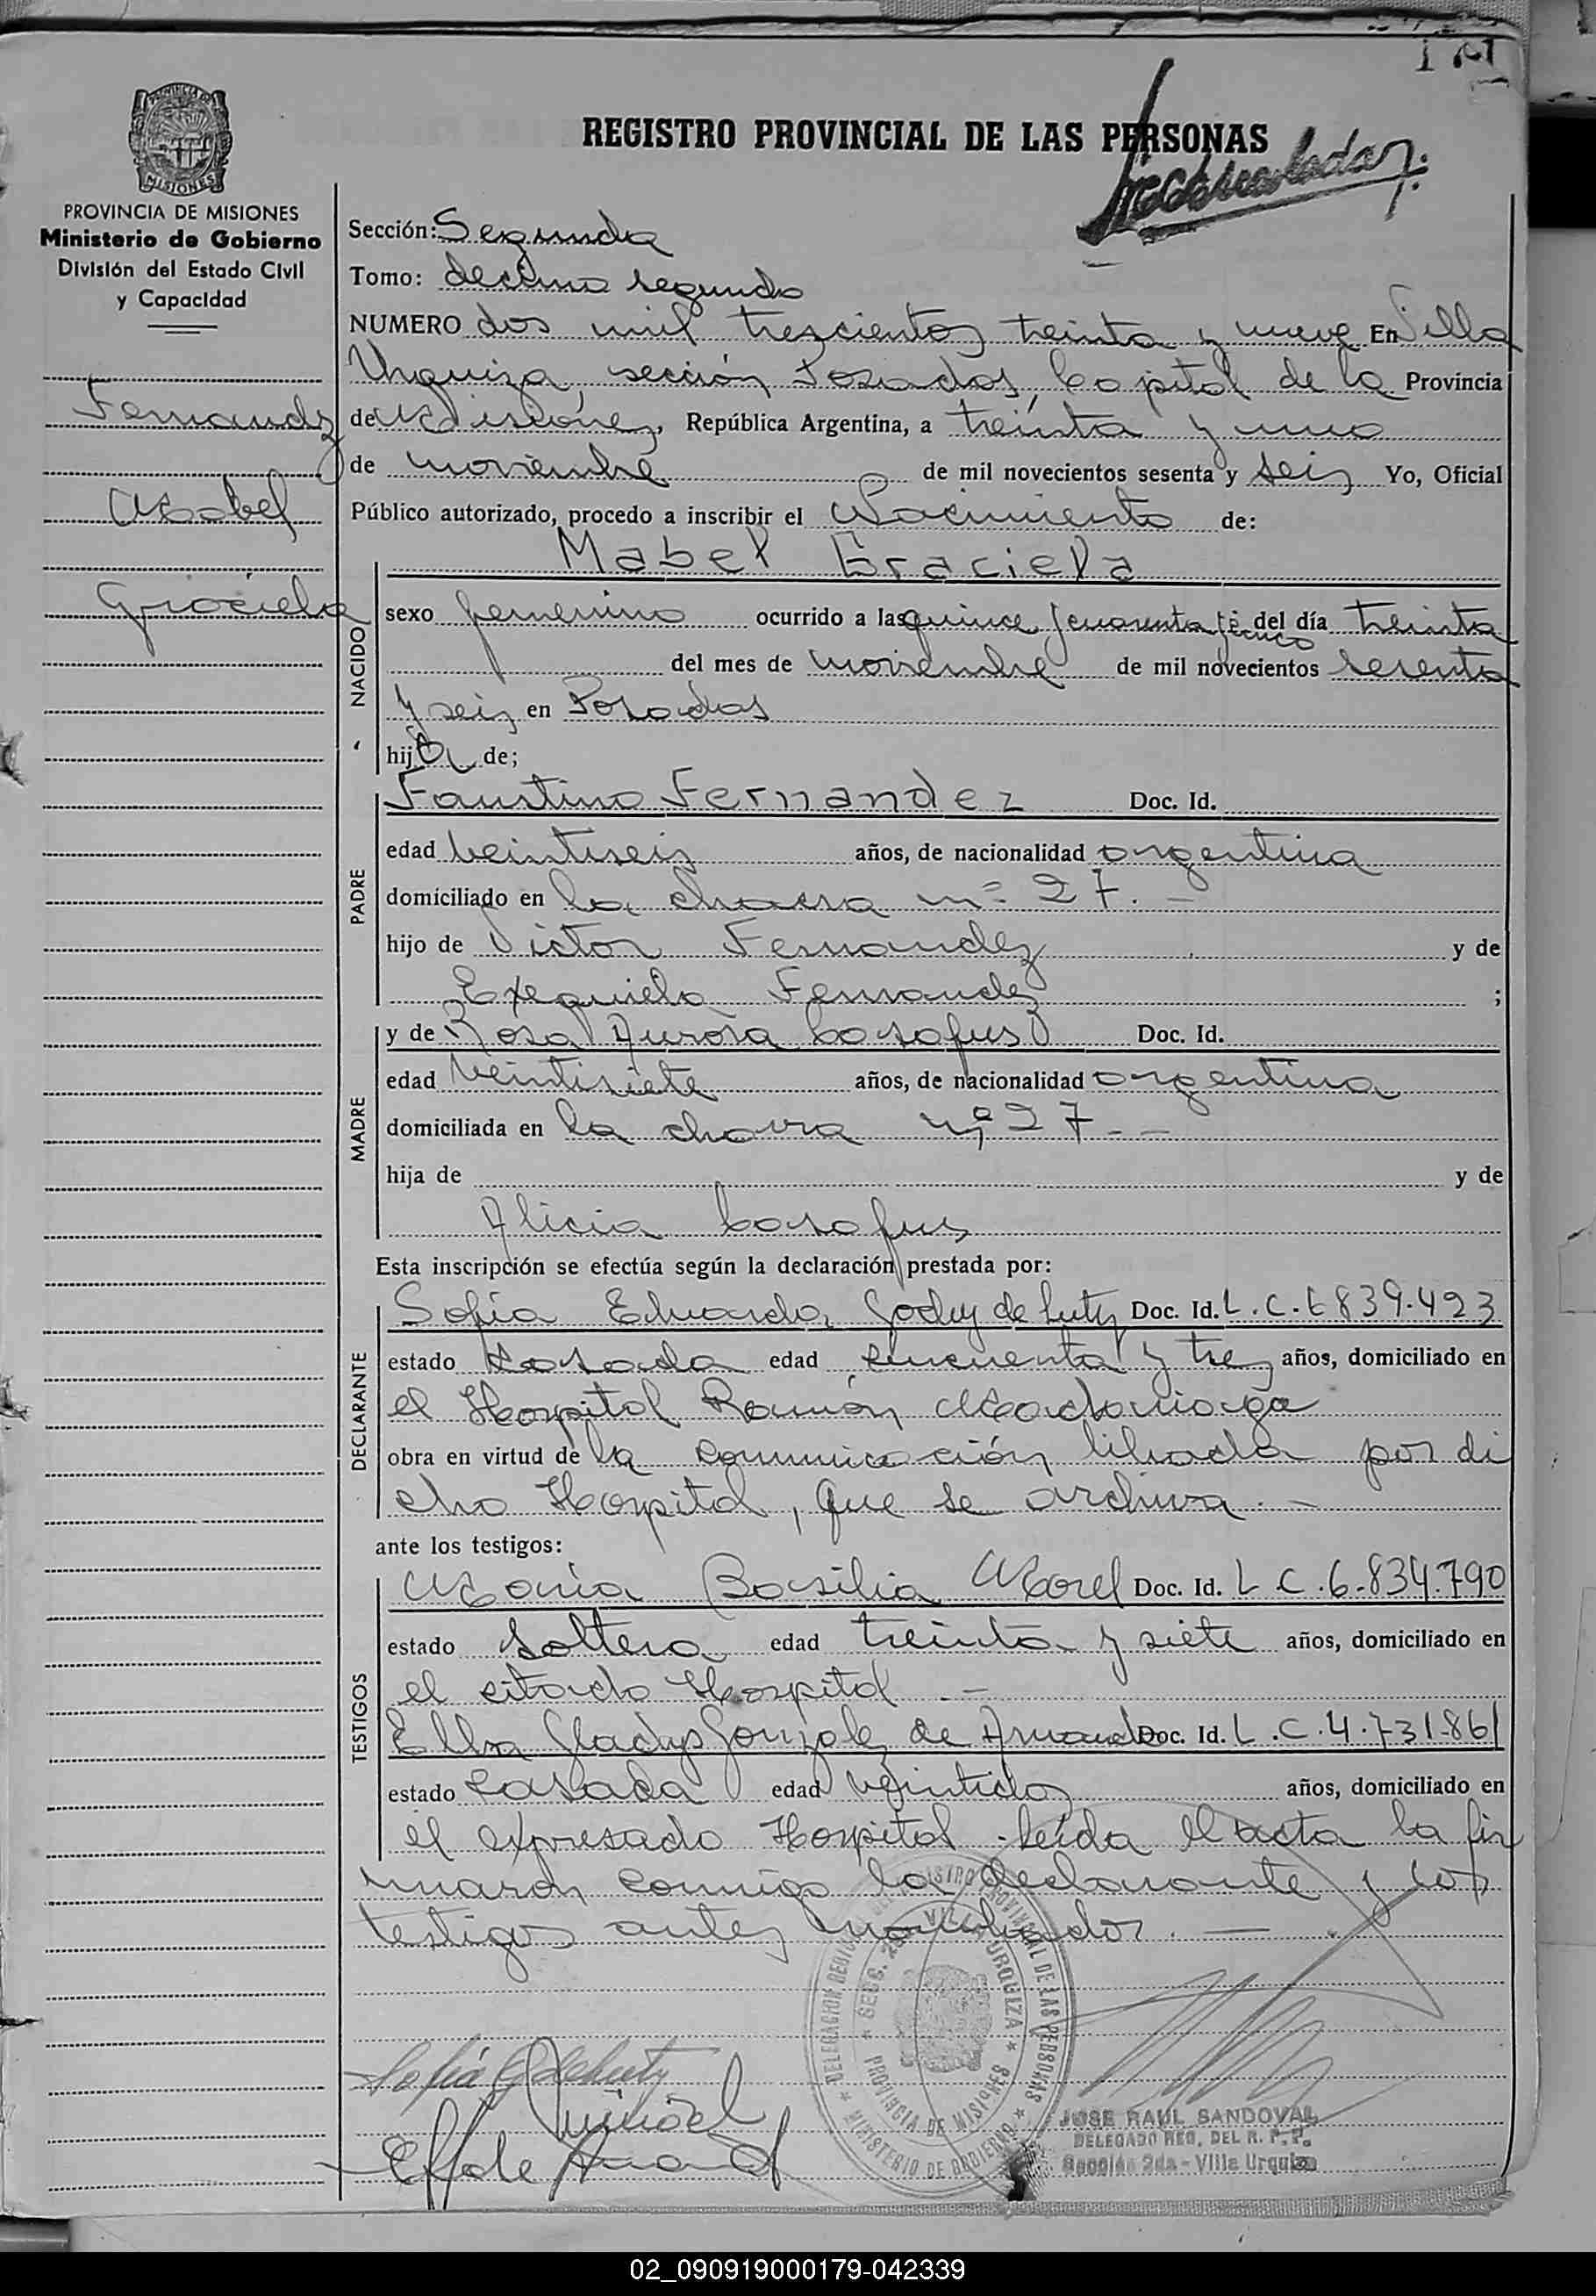 REGISTRO PROVINCIAL DE LAS PERSONAS
PROVINCIA DE MISIONES
Ministerio de Gobierno
División del Estado Civil
y Capacidad
Fernandez
Mabel
Graciela
Sección: Segunda
Tomo: decimo segundo
NUMERO dos mil trescientos treinta y nueve En Villa
Urquiza, sección Posadas, Capital de la Provincia
de Misiones, República Argentina, a treinta y uno
de noviembre de mil novecientos sesenta y seis Yo, Oficial
Público autorizado, procedo a inscribir el Nacimiento de:
Mabel Graciela
NACIDO
sexo femenino ocurrido a las quince y cuarenta y cinco del día treinta
del mes de noviembre de mil novecientos sesenta
y seis en Posadas
hija de;
PADRE
Faustino Fernandez Doc. Id.
edad veintiseis años, de nacionalidad argentina
domiciliado en la chacra nº 27. —
hijo de Victor Fernandez y de
Exequiela Fernandez ;
MADRE
y de Rosa Aurora Doc. Id.
edad veintisiete años, de nacionalidad argentina
domiciliada en la chacra nº 27 - —
hija de y de
Alicia
Esta inscripción se efectúa según la declaración prestada por:
DECLARANTE
Sofía Eduarda Godoy de Doc. Id. L.C. 6839.423
estado casada edad cincuenta y tres años, domiciliado en
el Hospital Ramón Madariaga
obra en virtud de la comunicación librada por di
cho Hospital, que se archiva. —
ante los testigos:
TESTIGOS
María Basilia Morel Doc. Id. L.C. 6.834.790
estado soltera edad treinta y siete años, domiciliado en
el citado Hospital. —
Elba Gladys Gonzalez de Doc. Id. L.C. 4.731.861
estado casada edad veintidos años, domiciliado en
el expresado Hospital. Leída el acta la fir
maron conmigo la declarante y los
testigos antes nombrados. —
DELEGACION REGISTRO PROVINCIAL DE LAS PERSONAS
SECC. 2da VILLA URQUIZA
PROVINCIA DE MISIONES
MINISTERIO DE GOBIERNO
JOSE RAUL SANDOVAL
DELEGADO REG. DEL R. P. P.
Sección 2da - Villa Urquiza
02_090919000179-042339